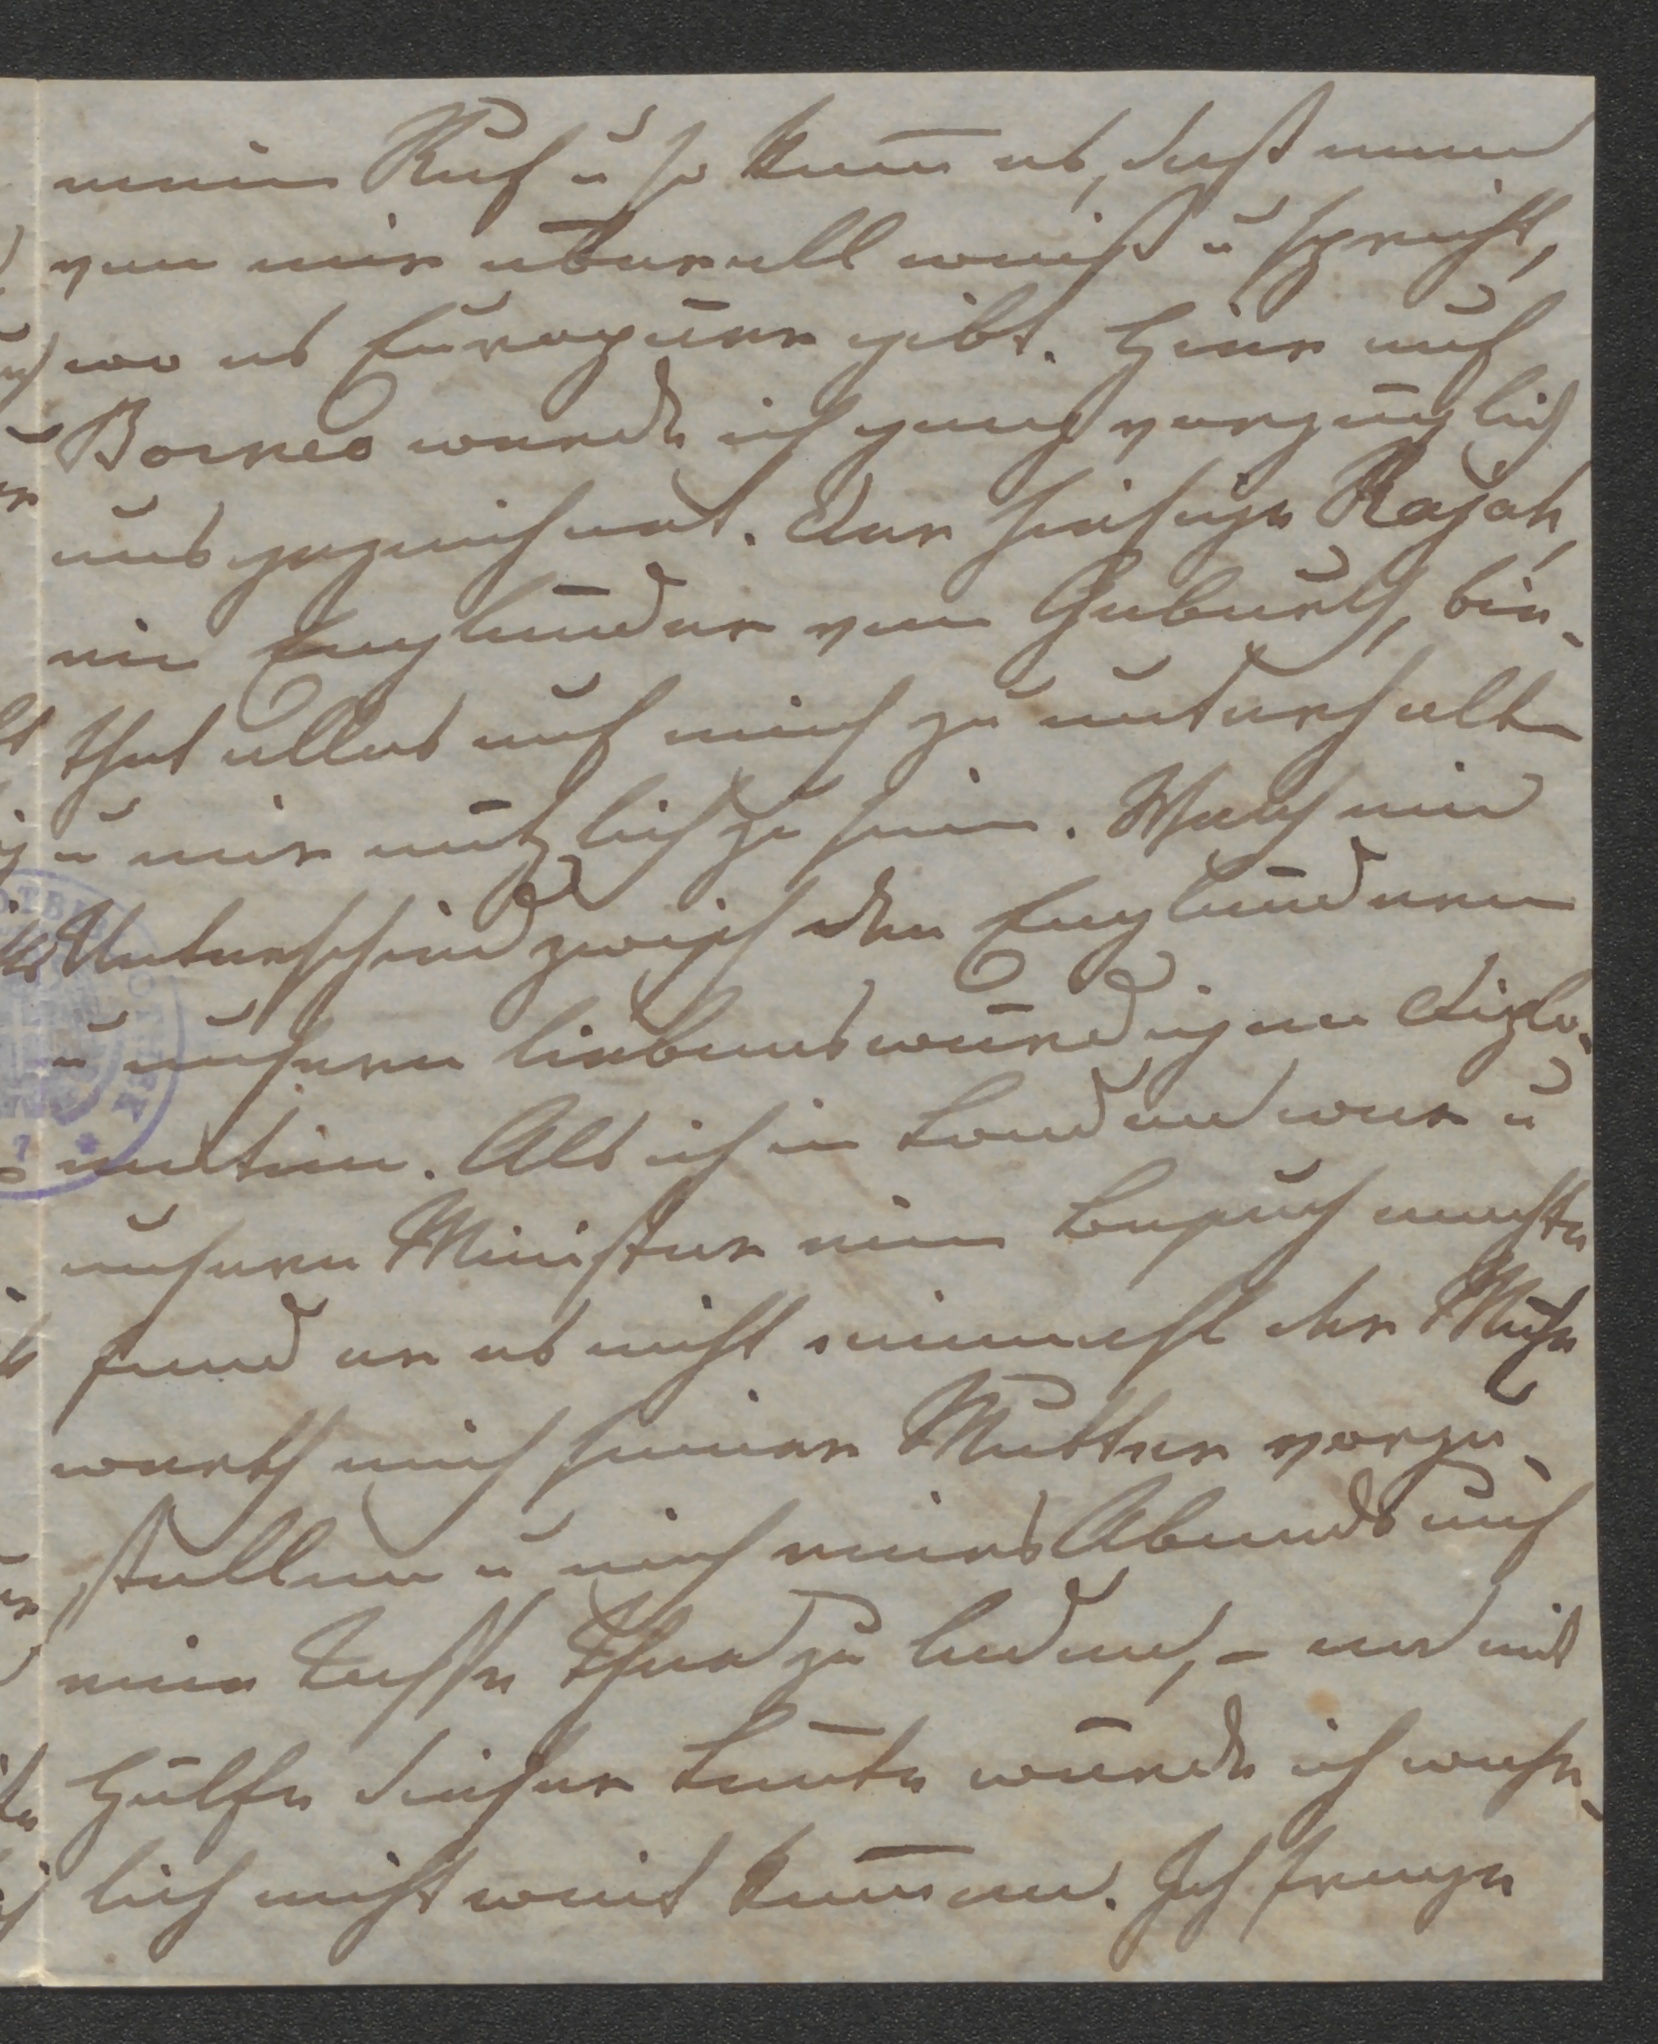 mein Ruf u so kam̄ es, daß man
von mir überall weiß u spricht,
wo es Europäer gibt. Hier auf
Borneo wurde ich ganz vorzüglich
ausgezeichnet. Der hiesige Rajah,
ein Engländer von Geburth,
that alles auf mich zu unterhalten
u mir nützlich zu sein. Welch ein
Unterschied zwischen den Engländern
u unsern liebenswürdigen Diplo-
maten. Als ich in London war u
unserm Minister einen Besuch machte
fand er es nicht einmahl der Mühe
werth mich seiner Mutter vorzu-
stellen u mich eines Abends auf
eine Tasse Thee zu laden, – und mit
Hülfe dieser Leute würde ich wahr-
lich nicht weit kom̄en. Ich frage